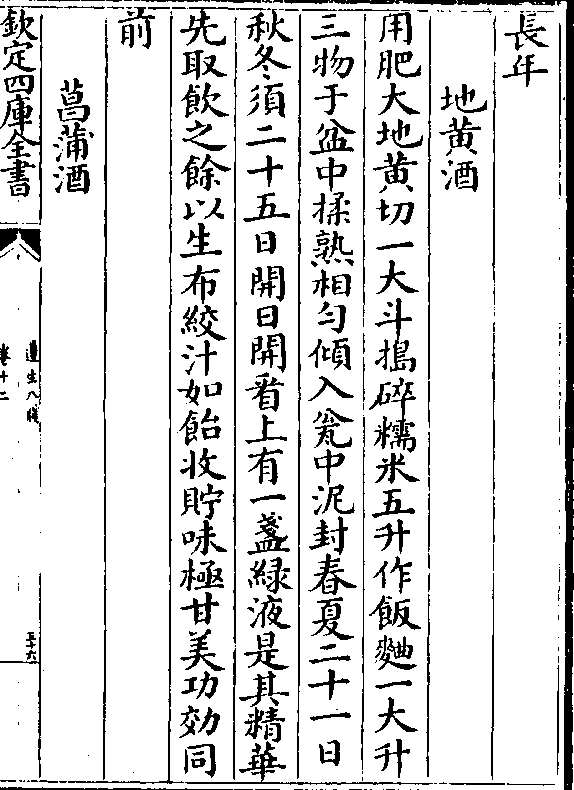 長年
地黄酒
用肥大地黄切一大斗搗碎糯米五升作飯麯一大升
三物于盆中揉熟相勻傾入瓮中泥封春夏二十一日
秋冬須二十五日開日開看上有一盞緑液是其精華
先取飲之餘以生布絞汁如飴收貯味極甘美功効同
前
菖蒲酒
欽定四庫全書
遵生八牋
卷十二